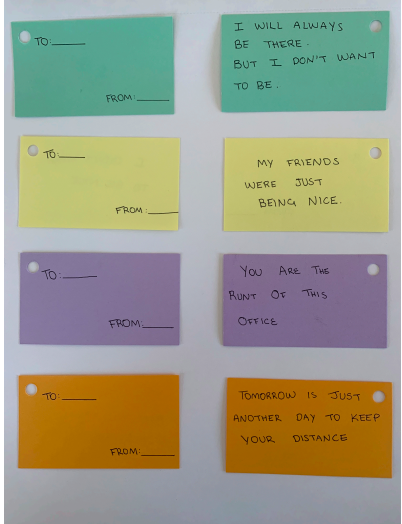 TO:______
FROM:______
I WILL ALWAYS
BE THERE.
BUT I DON'T WANT
TO BE.
TO:_____
FROM:______
MY FRIENDS
WERE JUST
BEING NICE.
TO:______
FROM:_____
YOU ARE THE
RUNT OF THIS
OFFICE
TO:______
FROM:______
TOMORROW IS JUST
ANOTHER DAY TO KEEP
YOUR DISTANCE